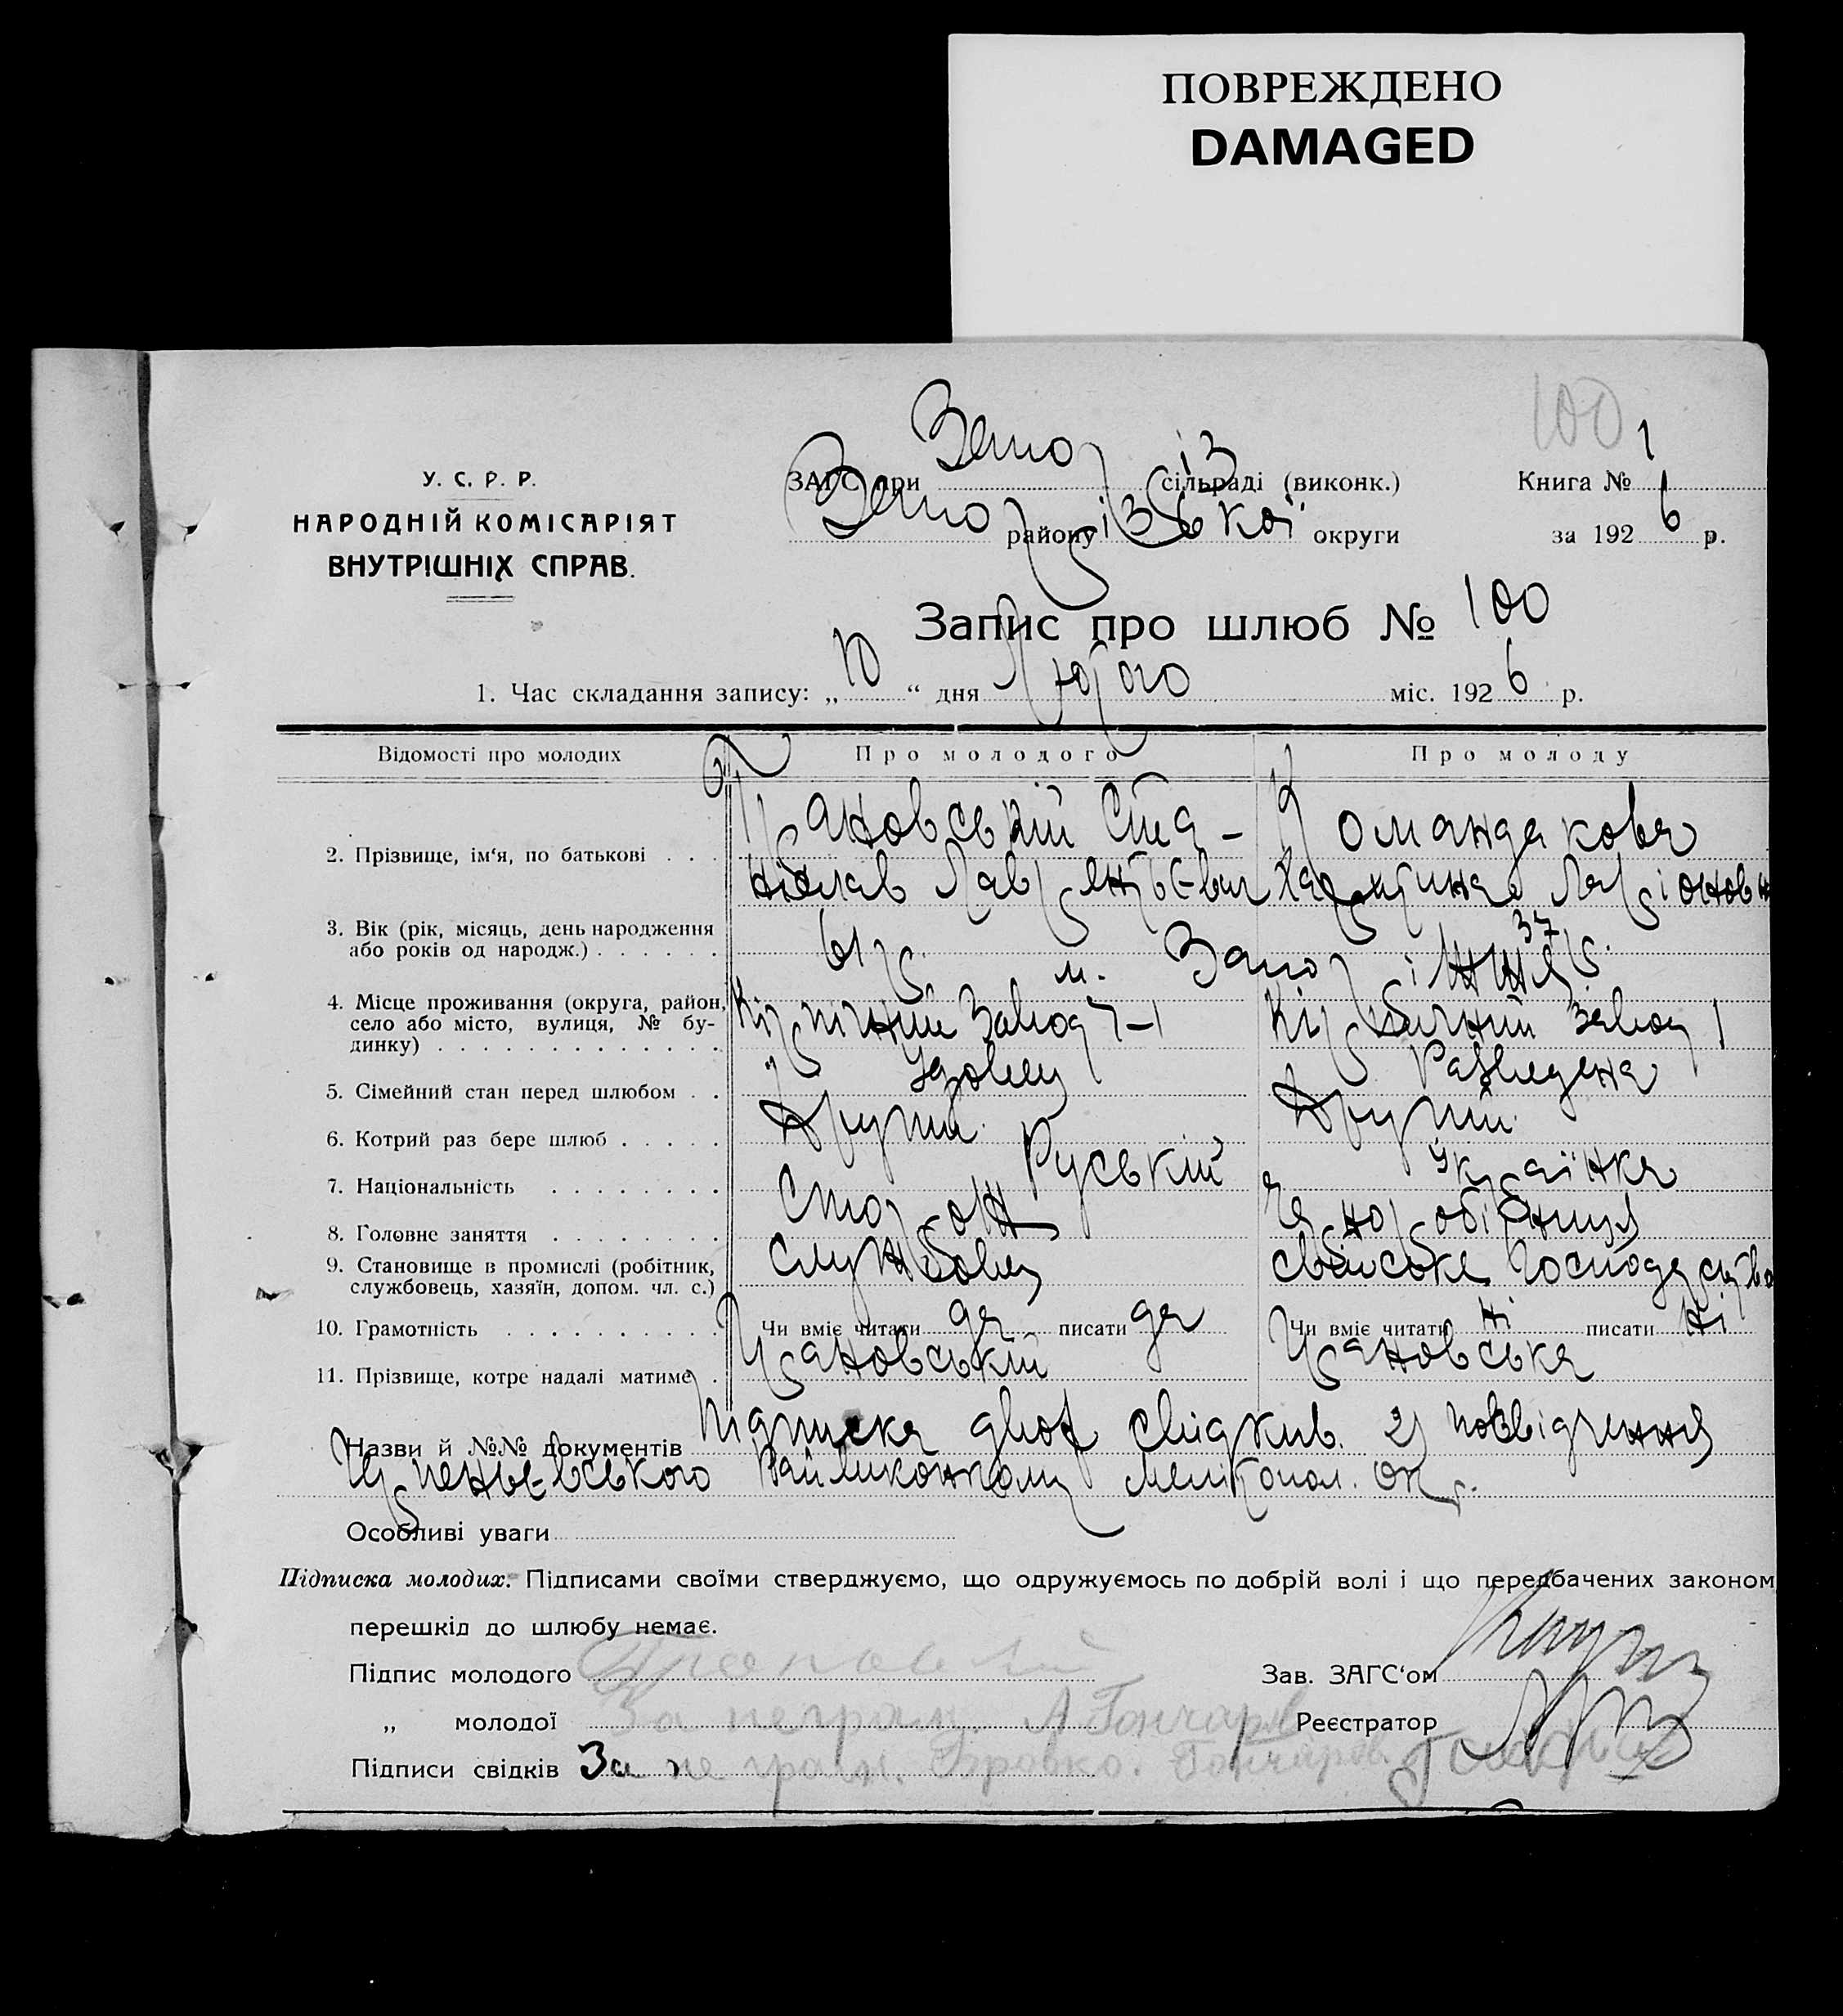 ПОВРЕЖДЕНО
DAMAGED
100
У. С. Р. Р.
НАРОДНІЙ КОМІСАРІЯТ
ВНУТРІШНІХ СПРАВ.
ЗАГС при Запоріз сільраді (виконк.)
Книга № 1
Запорізької района округи
за 1926 р.
Запис про шлюб № 100
1. Час складання запису: „10“ дня Лютого міс. 1926 р.
Відомості про молодих Про молодого Про молоду
2. Прізвище, ім‘я, по батькові . . . Командакова
Лаврентьєвич Ларіоновн
3. Вік (рік, місяць, день народження
або років од народж.) . . . . . . 61 р. 37 р.
м. Запоріжжя
4. Місце проживання (округа, район, село або місто, вулиця, № бу-
динку) . . . . . . . . . . . . . Кірпічний Завод 7-1 Кірпічний завод 1
5. Сімейний стан перед шлюбом . . Удовец Разведена
6. Котрий раз бере шлюб . . . . . Другий Другий
7. Національність . . . . . . . . Руській Українка
8. Головне заняття . . . . . . . . Сторож Чорноробітниця
9. Становище в промислі (робітник,
службовець, хазяїн, допом. чл. с.) Службовец свійське господарство
10. Грамотність . . . . . . . . . . Чи вміє читати да писати да Чи вміє читати ні писати ні
11. Прізвище, котре надалі матиме .
Назви й №№ документів Підписка двох свідків. 2)
Райвиконкому Мелітопол. окр.
Особливі уваги
Підписка молодих. Підписами своїми стверджуємо, що одружуємось по добрій волі і що передбачених законом
перешкід до шлюбу немає.
Підпис молодого
Зав. ЗАГС‘ом
„ молодої За неграм. А Гончарів
Реєстратор
Підписи свідків За неграм. Бровко. Гончаров.